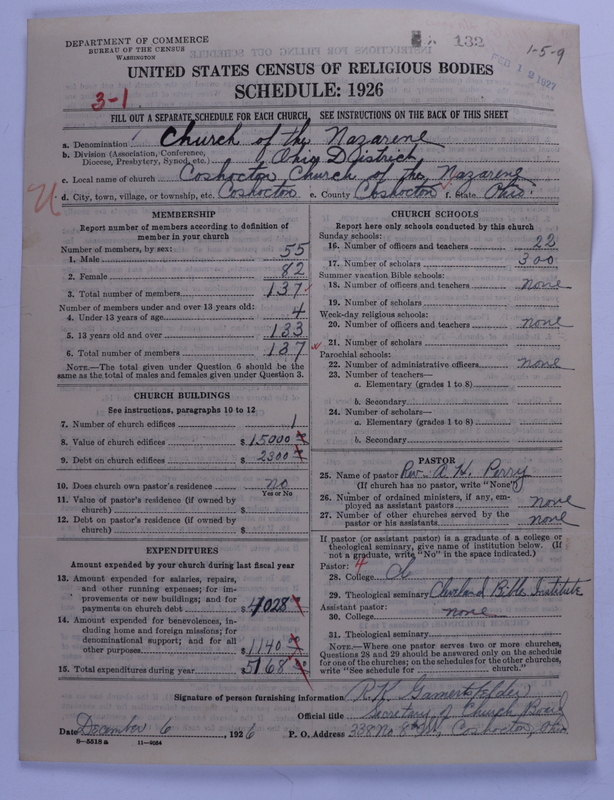 DEPARTMENT OF COMMERCE
BUREAU OF THE CENSUS
WASHINGTON
132
1-5-9
FEB 12 1927
UNITED STATES CENSUS OF RELIGIOUS BODIES
SCHEDULE: 1926
3-1
FILL OUT A SEPARATE SCHEDULE FOR EACH CHURCH. SEE INSTRUCTIONS ON THE BACK OF THIS SHEET
a. Denomination Church of the Nazarene
b. Division (Association, Conference, Diocese, Presbytery, Synod, etc.) Ohio District
c. Local name of church Coshocton Church of the Nazarene
d. City, town, village, or township, etc. Coshocton e. County Coshocton f. State Ohio
MEMBERSHIP
Report number of members according to definition of
member in your church
Number of members, by sex:
1. Male 55
2. Female 82
3. Total number of members 137
Number of members under and over 13 years old:
4. Under 13 years of age 4
5. 13 years old and over 133
6. Total number of members 137
NOTE.—The total given under Question 6 should be the
same as the total of males and females given under Question 3.
CHURCH BUILDINGS
See instructions, paragraphs 10 to 12
7. Number of church edifices 1
8. Value of church edifices $ 15000
9. Debt on church edifices $ 2300
10. Does church own pastor's residence? no
Yes or No
11. Value of pastor's residence (if owned by
church) $
12. Debt on pastor's residence (if owned by
church) $
EXPENDITURES
Amount expended by your church during last fiscal year
13. Amount expended for salaries, repairs,
and other running expenses; for im-
provements or new buildings; and for
payments on church debt $ 4028
14. Amount expended for benevolences, in-
cluding home and foreign missions; for
denominational support; and for all
other purposes $ 1140
15. Total expenditures during year $ 5168
CHURCH SCHOOLS
Report here only schools conducted by this church
Sunday schools:
16. Number of officers and teachers 22
17. Number of scholars 300
Summer vacation Bible schools:
18. Number of officers and teachers none
19. Number of scholars
Week-day religious schools:
20. Number of officers and teachers none
21. Number of scholars
Parochial schools:
22. Number of administrative officers none
23. Number of teachers—
a. Elementary (grades 1 to 8)
b. Secondary
24. Number of scholars—
a. Elementary (grades 1 to 8)
b. Secondary
PASTOR
25. Name of pastor Rev. A. H. Perry
(If church has no pastor, write "None")
26. Number of ordained ministers, if any, em-
ployed as assistant pastors none
27. Number of other churches served by the
pastor or his assistants none
If pastor (or assistant pastor) is a graduate of a college or
theological seminary, give name of institution below. (If
not a graduate, write "No" in the space indicated.)
Pastor: 4
28. College
29. Theological seminary Cleveland Bible Institute
Assistant pastor:
30. College none
31. Theological seminary
NOTE.—Where one pastor serves two or more churches,
Questions 28 and 29 should be answered only on the schedule
for one of the churches; on the schedules for the other churches,
write "See schedule for church."
Signature of person furnishing information R. K. Gamertsfelder
Official title Secretary of Church Board
Date December 6, 1926 P. O. Address 338 No 8th St, Coshocton, Ohio
6—5518 a 11—9054